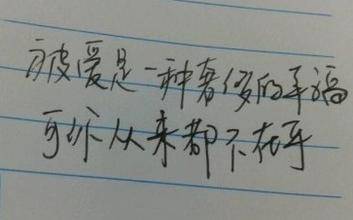 被爱是一种奢侈的幸福
可你从来都不在乎